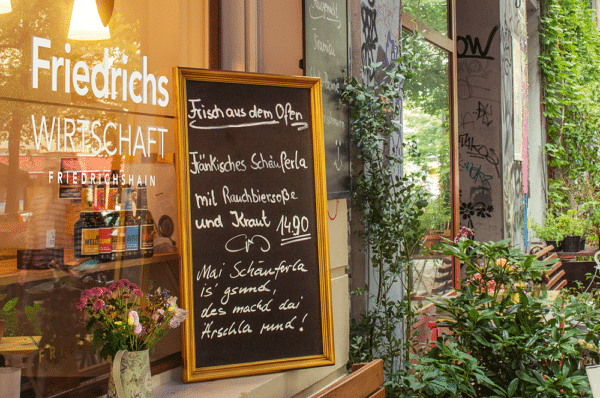 Friedrichs
WIRTSCHAFT
FRIEDRICHSHAIN
Frisch aus dem Ofen
Fänkisches Schäuferla
mit Rauchbiersoße
und Kraut 14.90
Mai Schäuferla
is' gsund,
des machd dai
Ärschla rund!